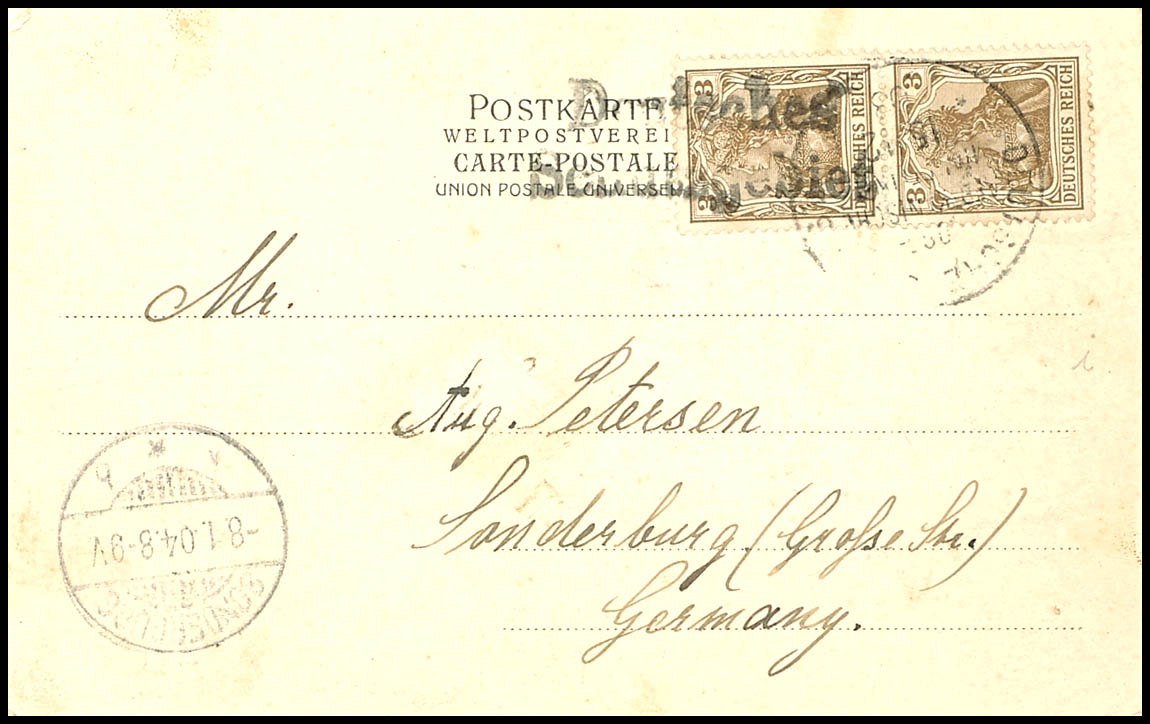 POSTKARTE
WELTPOSTVEREI
CARTE-POSTALE
UNION POSTALE UNIVERSEL
Deutsches
3 DEUTSCHES REICH 3
3 DEUTSCHES REICH 3
Mr.
Aug. Petersen
Sonderburg (Große Str.)
Germany.
-8.1.04.8-9V